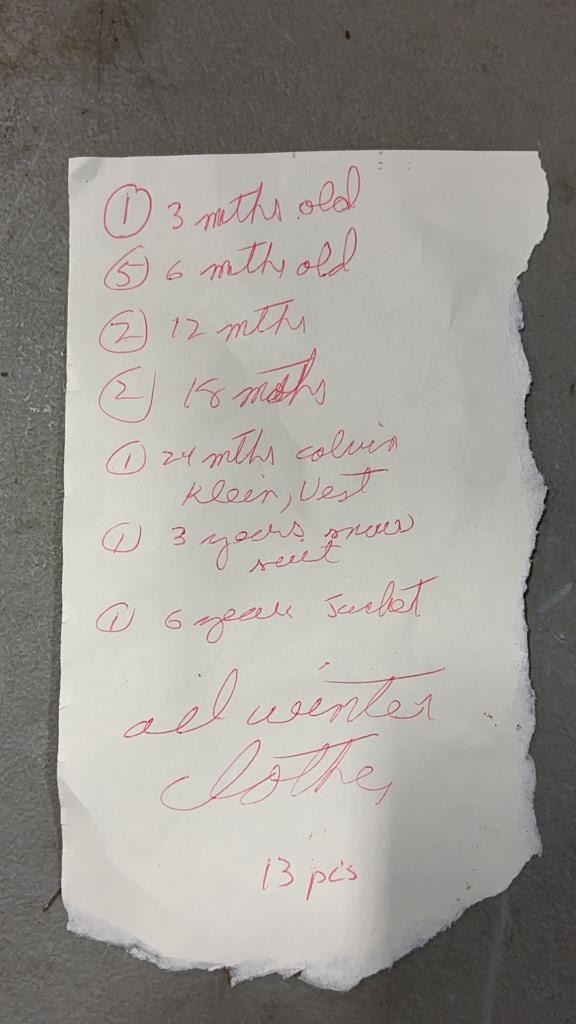 ① 3 mths old
⑤ 6 mths old
② 12 mths
② 18 mths
① 24 mths colvin
Klein, Vest
① 3 years snow
suit
① 6 years Jacket
all winter
clothes
13 pcs